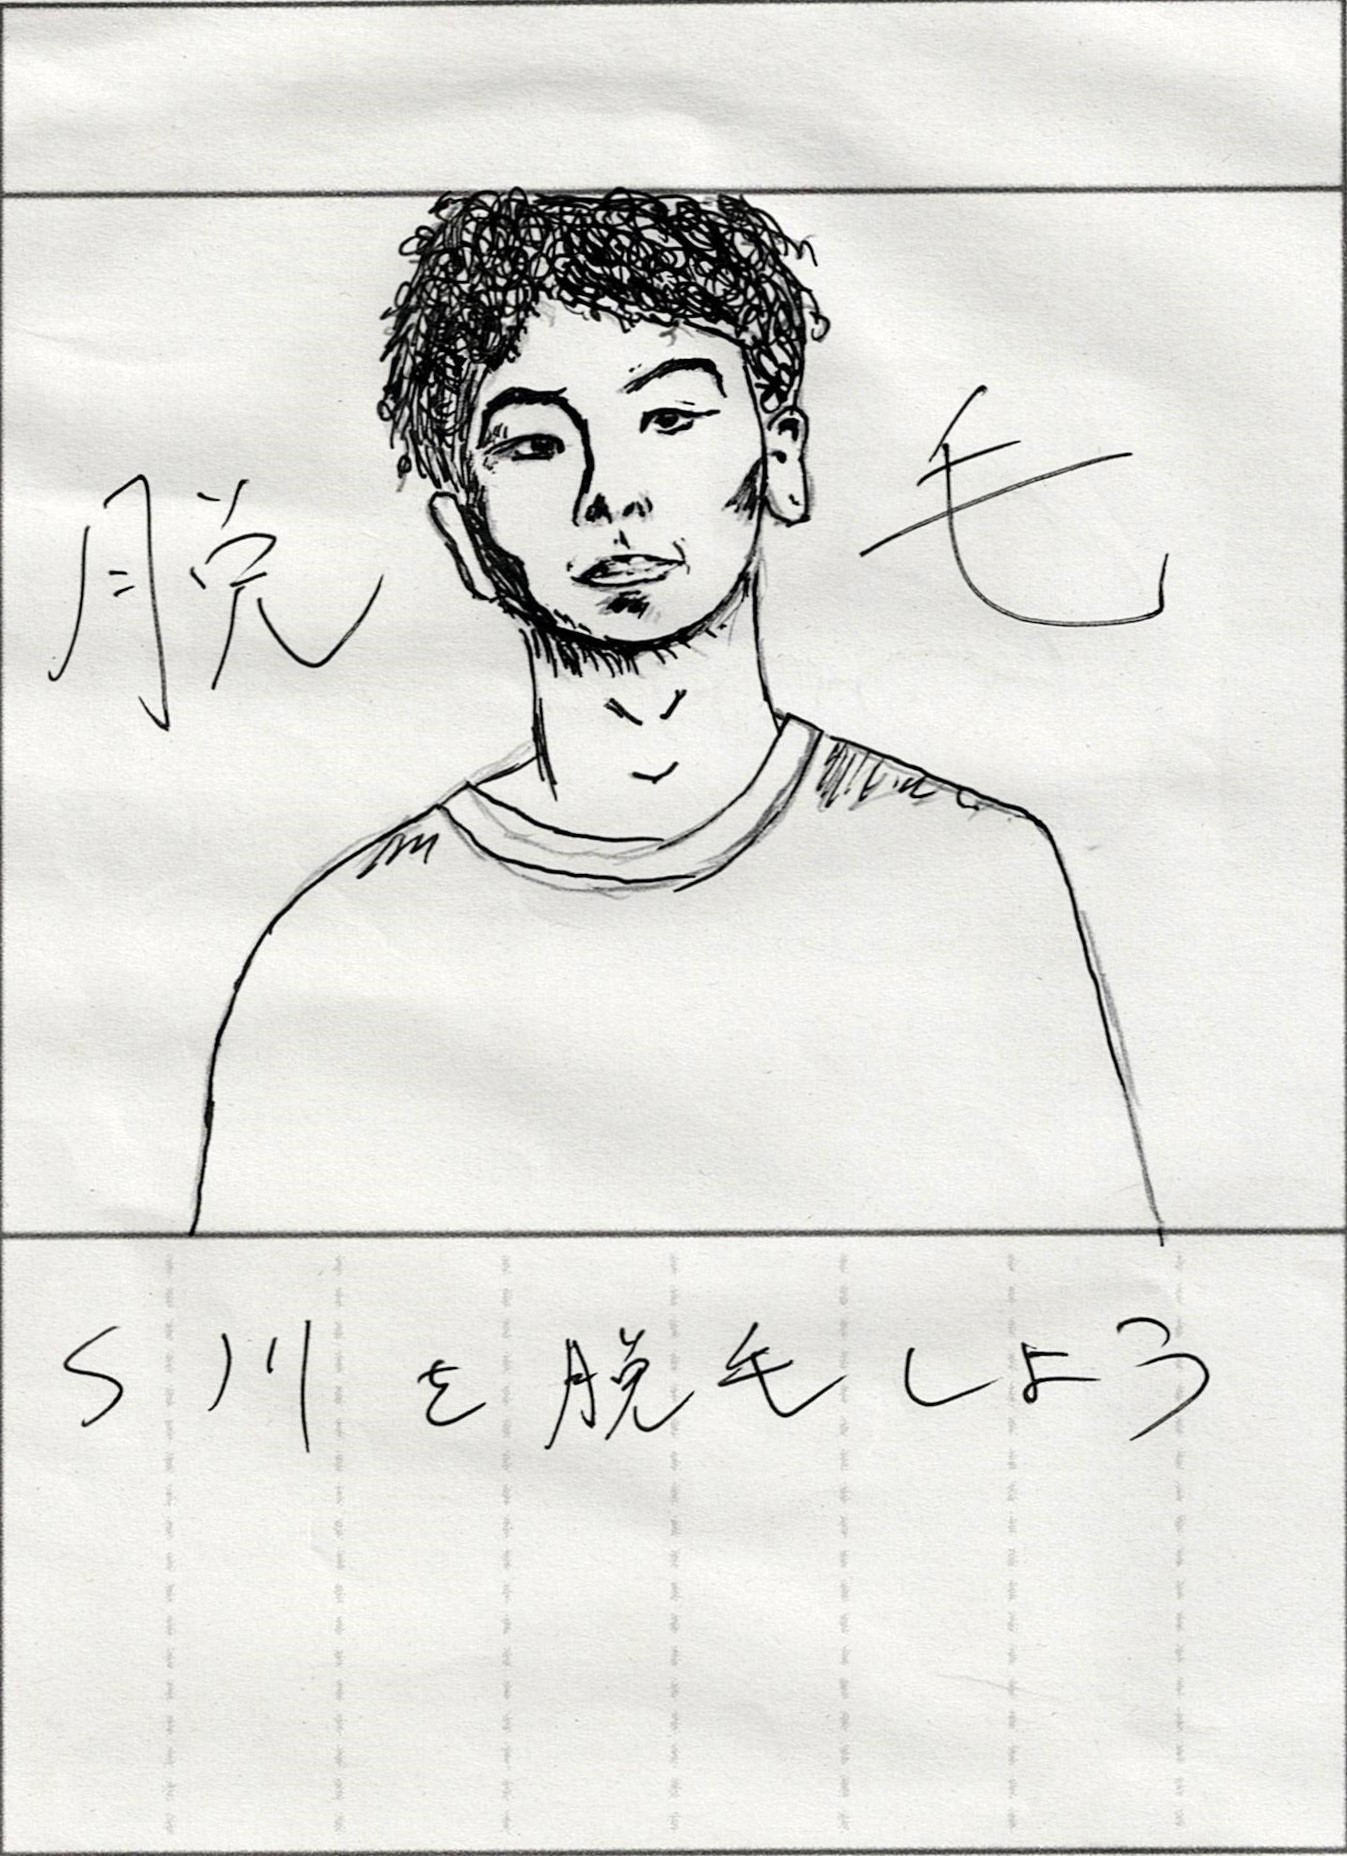 脱毛
S川を脱毛しよう